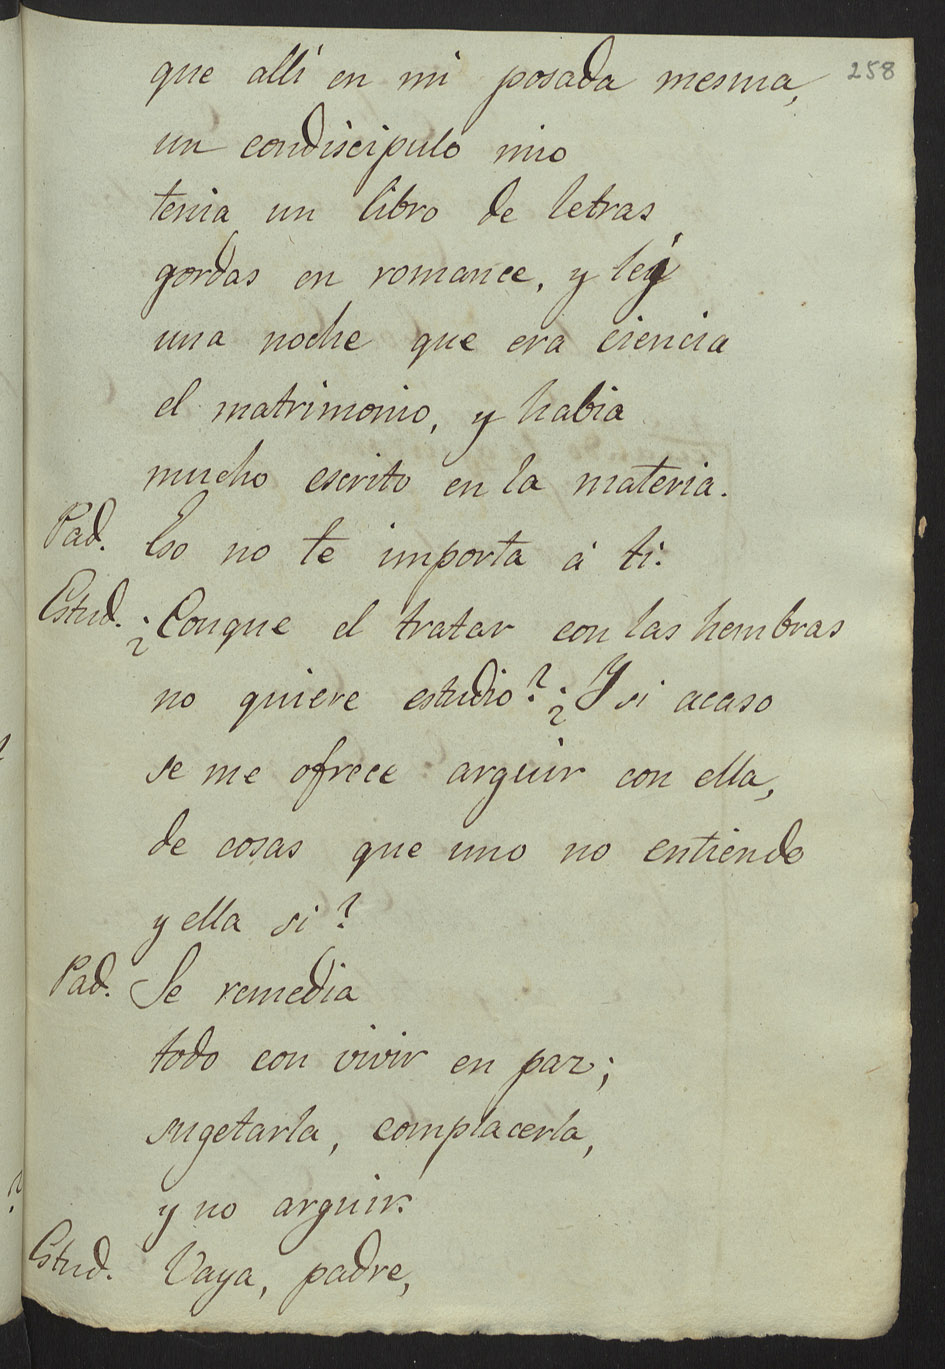 258
que allí en mi posada mesma,
un condiscipulo mio
tenia un libro de letras
gordas en romance, y leý
una noche que era ciencia
el matrimonio, y habia
mucho escrito en la materia.
Pad. Eso no te importa á ti.
Estud. ¿Conque el tratar con las hembras
no quiere estudio? ¿Y si acaso
se me ofrece arguir con ella,
de cosas que uno no entiende
y ella si?
Pad. Se remedia
todo con vivir en paz;
sugetarla, complacerla,
y no arguir.
Estud. Vaya, padre,